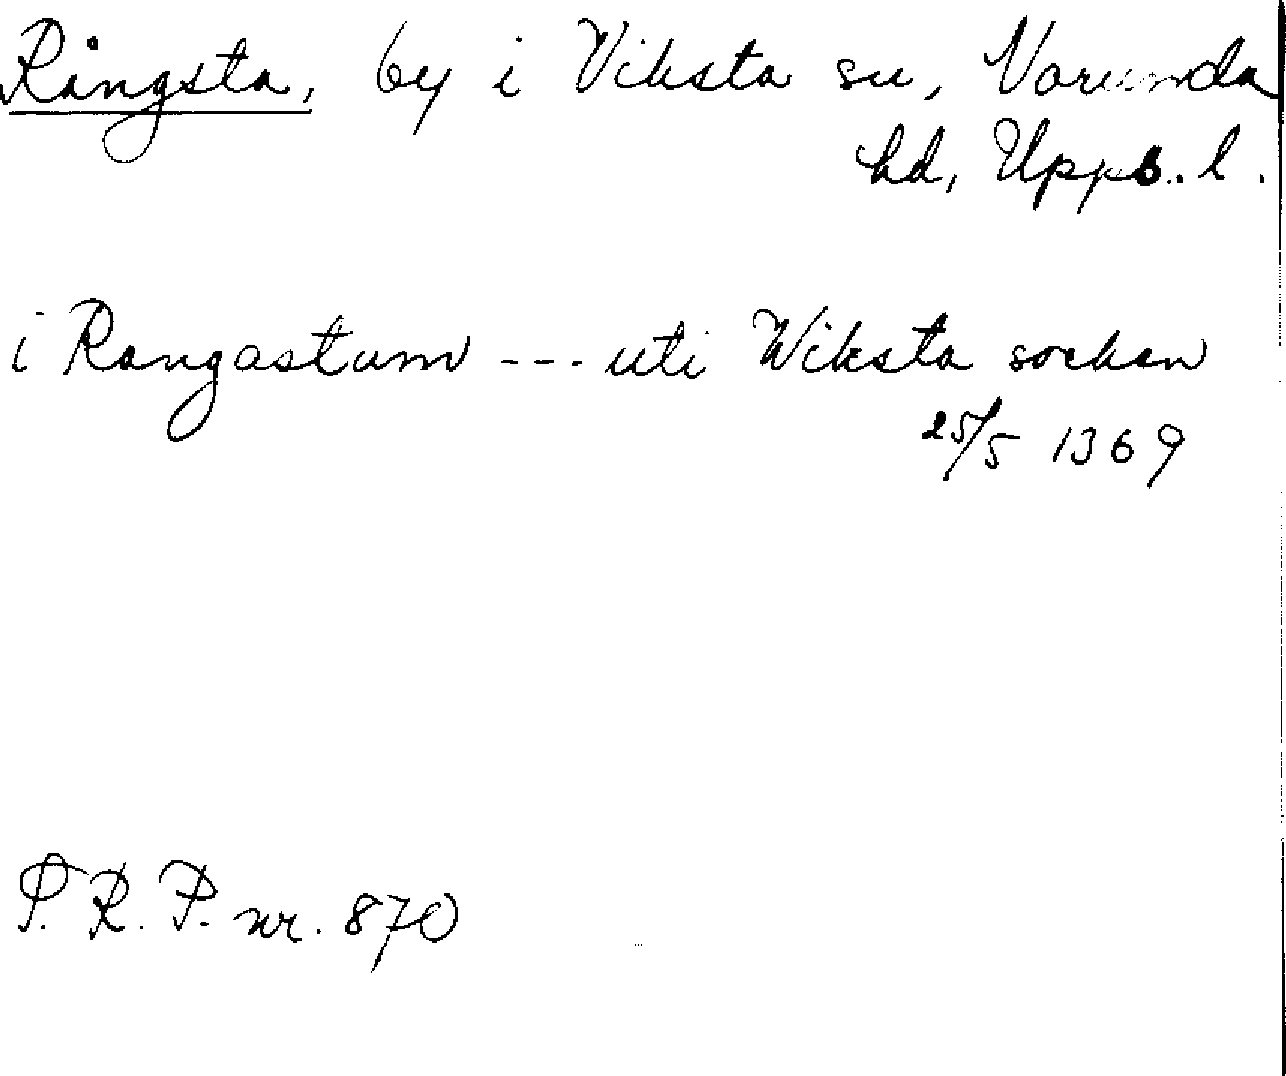 Rångsta, by i Viksta sn, Vaxunda
hd, Upps. l.
i Rangastum --- uti Wiksta sockn
25/5 1369
P. R. P. nr. 870